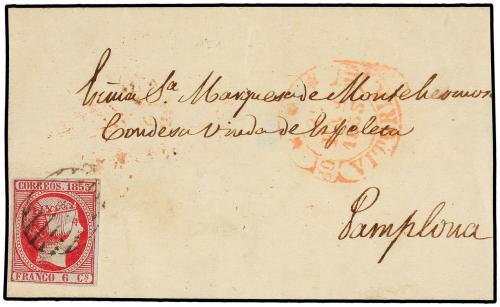 Exma Sa. Marquesa de Montehermoso
Condesa Viuda de Ezpeleta
Pamplona
CORREOS. 1853
FRANCO 6 Cs